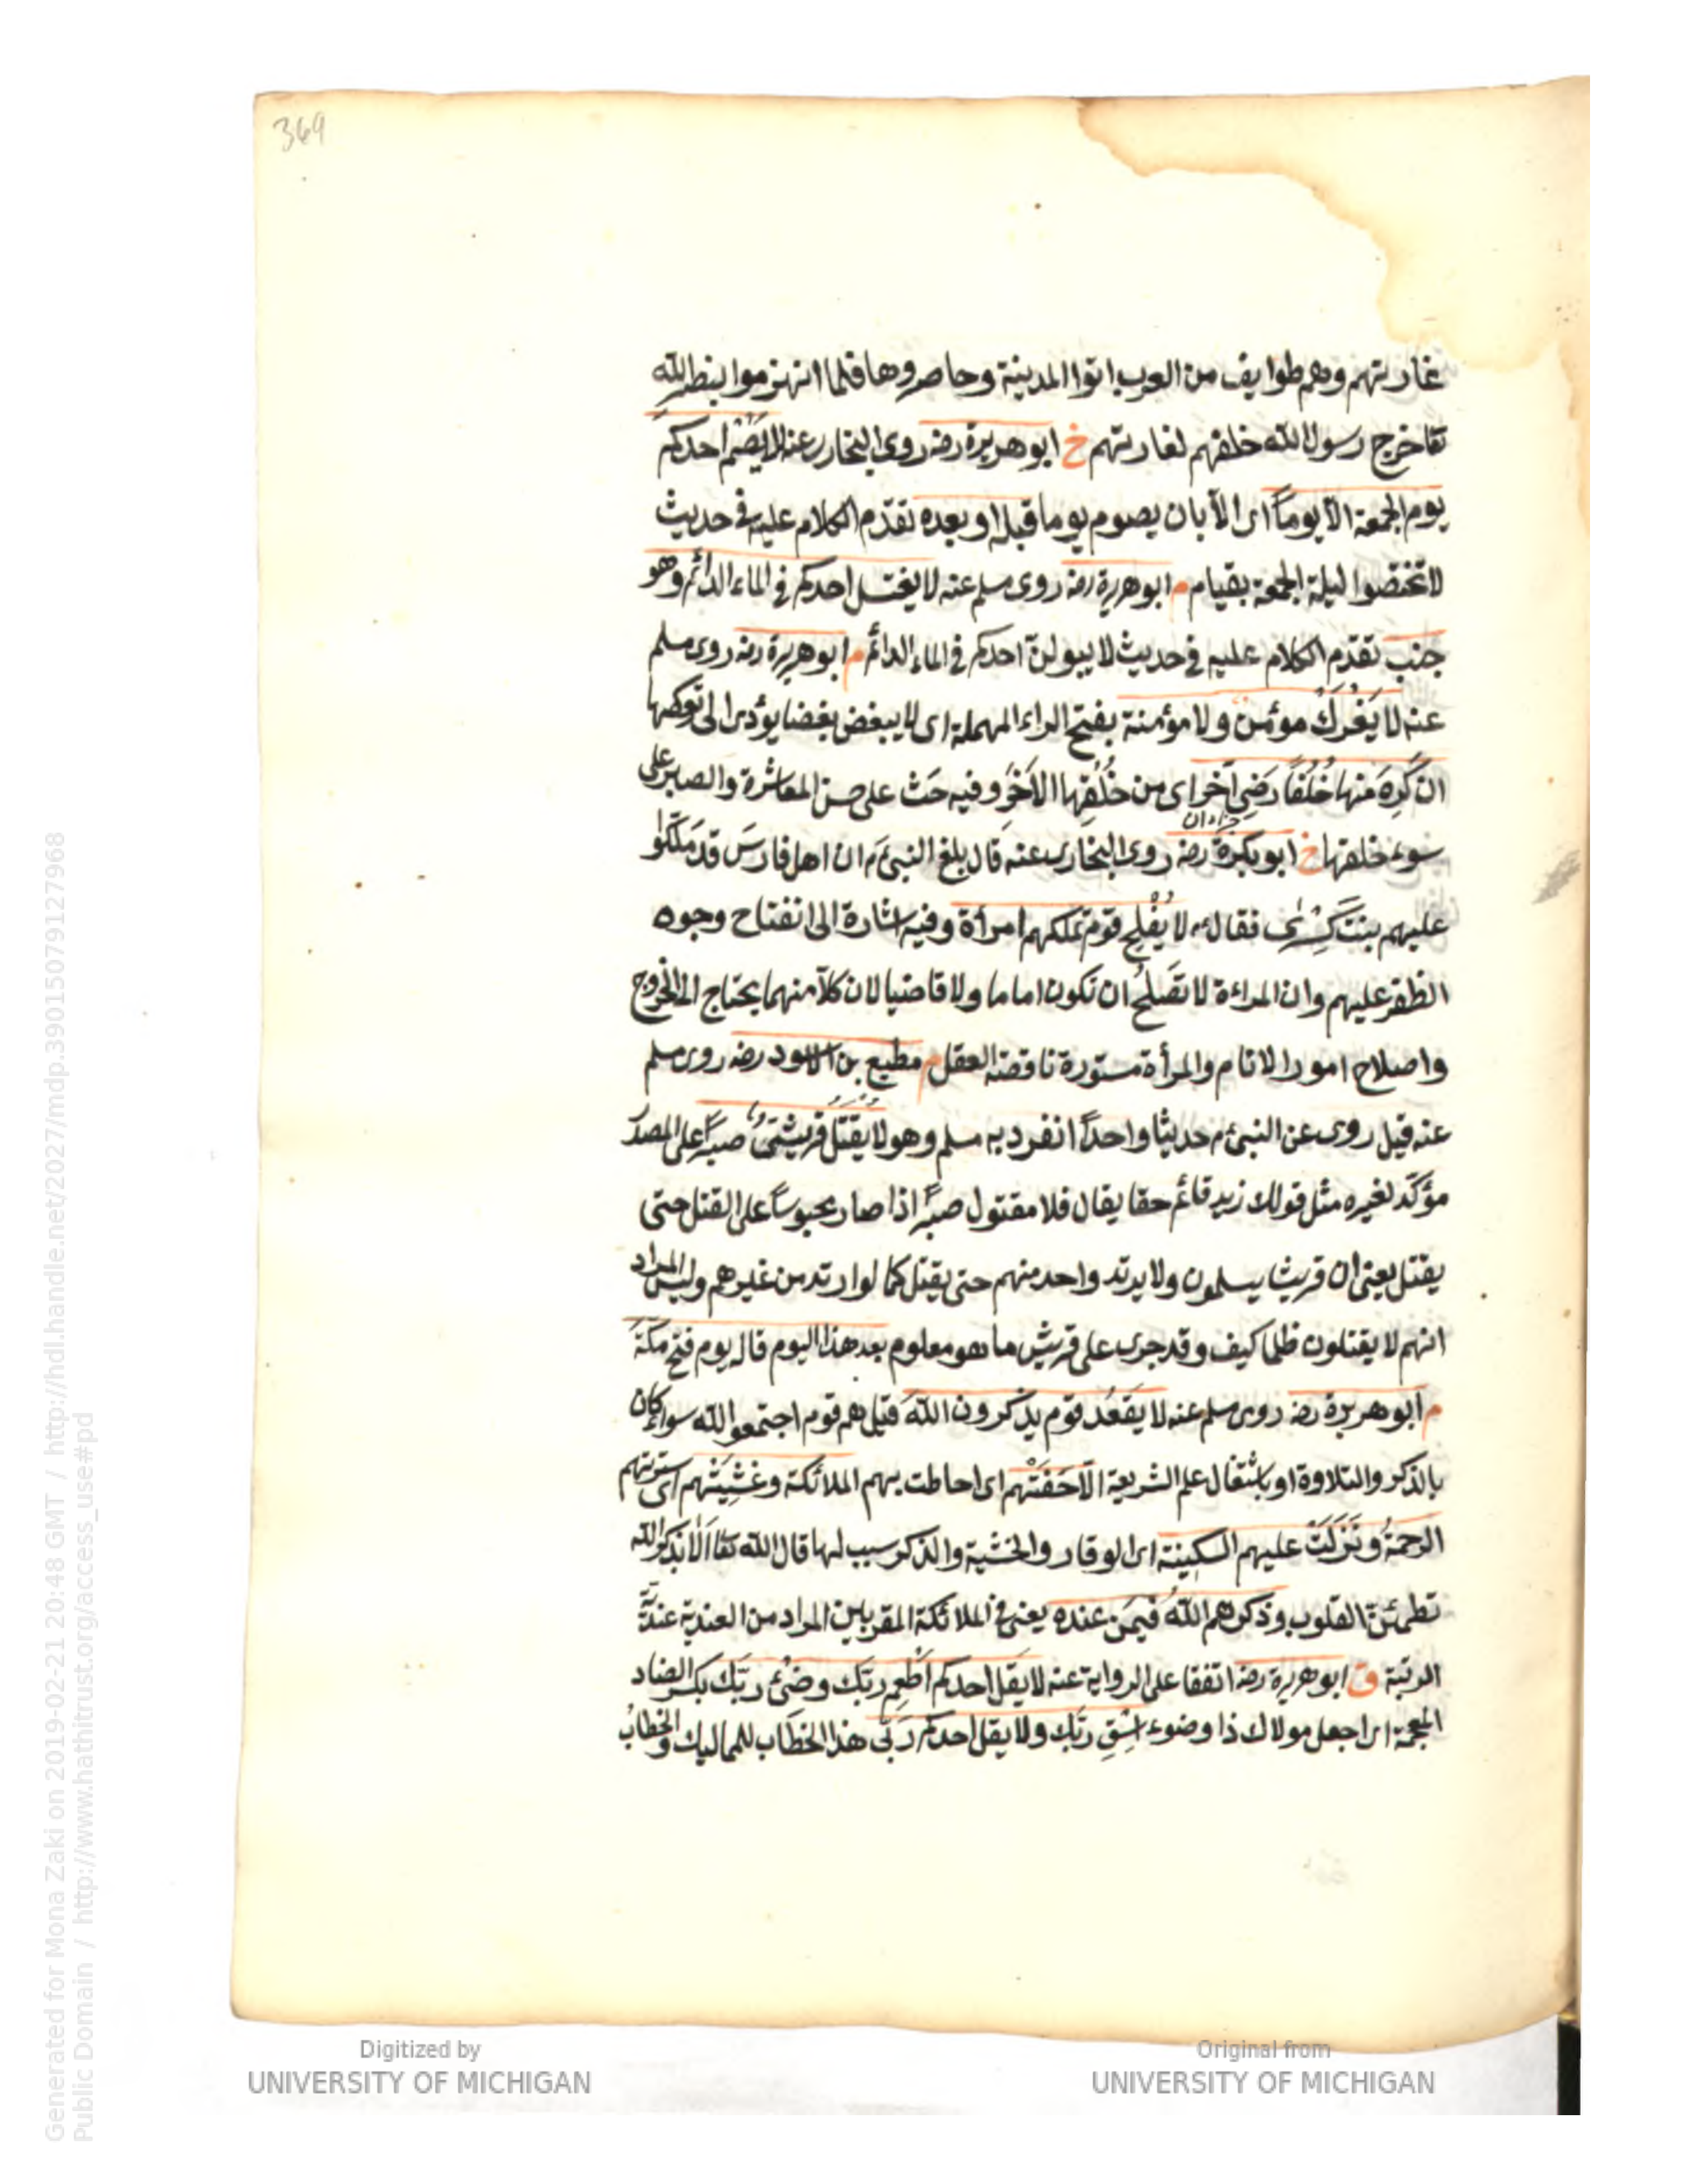 369
غارتهم وهم طوايف من العرب اتوا المدينة وحاصروها فلما انهزموا بنصر الله
تعا خرج رسول الله خلفهم لغارتهم خ ابو هريرة رضه روى البخارى عنه لا يصم احدكم
يوم الجمعة الا يوماً اى الا بان يصوم يوما قبله او بعده تقدم الكلام عليه في حديث
لا تختصوا ليلة الجمعة بقيام م ابو هريرة رضه روى مسلم عنه لا يغتسل احدكم في الماء الدائم وهو
جنب تقدم الكلام عليه في حديث لا يبولن احدكم في الماء الدائم م ابو هريرة رضه روى مسلم
عنه لا يَفْرَكْ مؤمن ولا مؤمنة بفتح الراء المهملة اى لا يبغض بغضا يؤدى الى تركها
ان كَرِهَ منها خُلُقاً رَضِىَ آخر اى من خُلُقِها الآخَر وفيه حَثّ على حسن المعاشرة والصبر على
سوء خلقها خ ابو بكرة رضه روى البخارى عنه قال بلغ النبى م ان اهل فارسَ قد مَلَّكوا
عليهم بنتَ كِسْرى فقال م لا يُفْلِح قوم تملكهم امرأة وفيه اشارة الى انفتاح وجوه
الظفر عليهم وان المراءة لا تَصلحُ ان تكون اماما ولا قاضيا لان كلاّ منهما يحتاج الى الخروج
واصلاح امور الانام والمرأة مستورة ناقصة العقل م مطيع بن الاسود رضه روى مسلم
عنه قيل روى عن النبى م حديثا واحداً انفرد به مسلم وهو لا يُقْتَلُ قريشىّ صبراً على المصدر
مؤكّد لغيره مثل قولك زيد قائم حقا يقال فلا مقتول صبراً اذا صار محبوساً على القتل حتى
يقتل يعنى ان قريشا يسلمون ولا يرتد واحد منهم حتى يقتل كما لو ارتد من غيرهم وليس المراد
انهم لا يقتلون ظلما كيف وقد جرى على قريش ما هو معلوم بعد هذا اليوم قاله يوم فتح مكة
م ابو هريرة رضه روى مسلم عنه لا يَقعُد قوم يذكرون اللهَ قيل هم قوم اجتمعوا لله سواء كان
بالذكر والتلاوة او باشتغال علم الشريعة الّا حَفَّتْهم اى احاطت بهم الملائكة وغَشِيَتْهم اى سترتهم
الرحمةُ ونَزَلَتْ عليهم السكينة اى الوقار والخشية والذكر سبب لها قال الله تعا اَلَا بذكر الله
تطمئنّ القلوب وذكرهم اللهُ فيمَن عنده يعنى في الملائكة المقربين المراد من العندية عندية
الرتبة ق ابو هريرة رضه اتفقا على الرواية عنه لا يَقُل احدكم اَطْعِم ربَّك وضّئ ربَّك بكسر الضاد
المعجمة اى اجعل مولاك ذا وضوء اسْقِ ربّك ولا يقل احدكم رَبّى هذا الخطاب للمماليك والخطابُ
Generated for Mona Zaki on 2019-02-21 20:48 GMT / http://hdl.handle.net/2027/mdp.39015079127968
Public Domain / http://www.hathitrust.org/access_use#pd
Digitized by
UNIVERSITY OF MICHIGAN
Original from
UNIVERSITY OF MICHIGAN